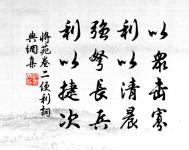 以眾击寡
利以清晨
强弩長兵
利以捷次
將苑卷二便利詞
典網集